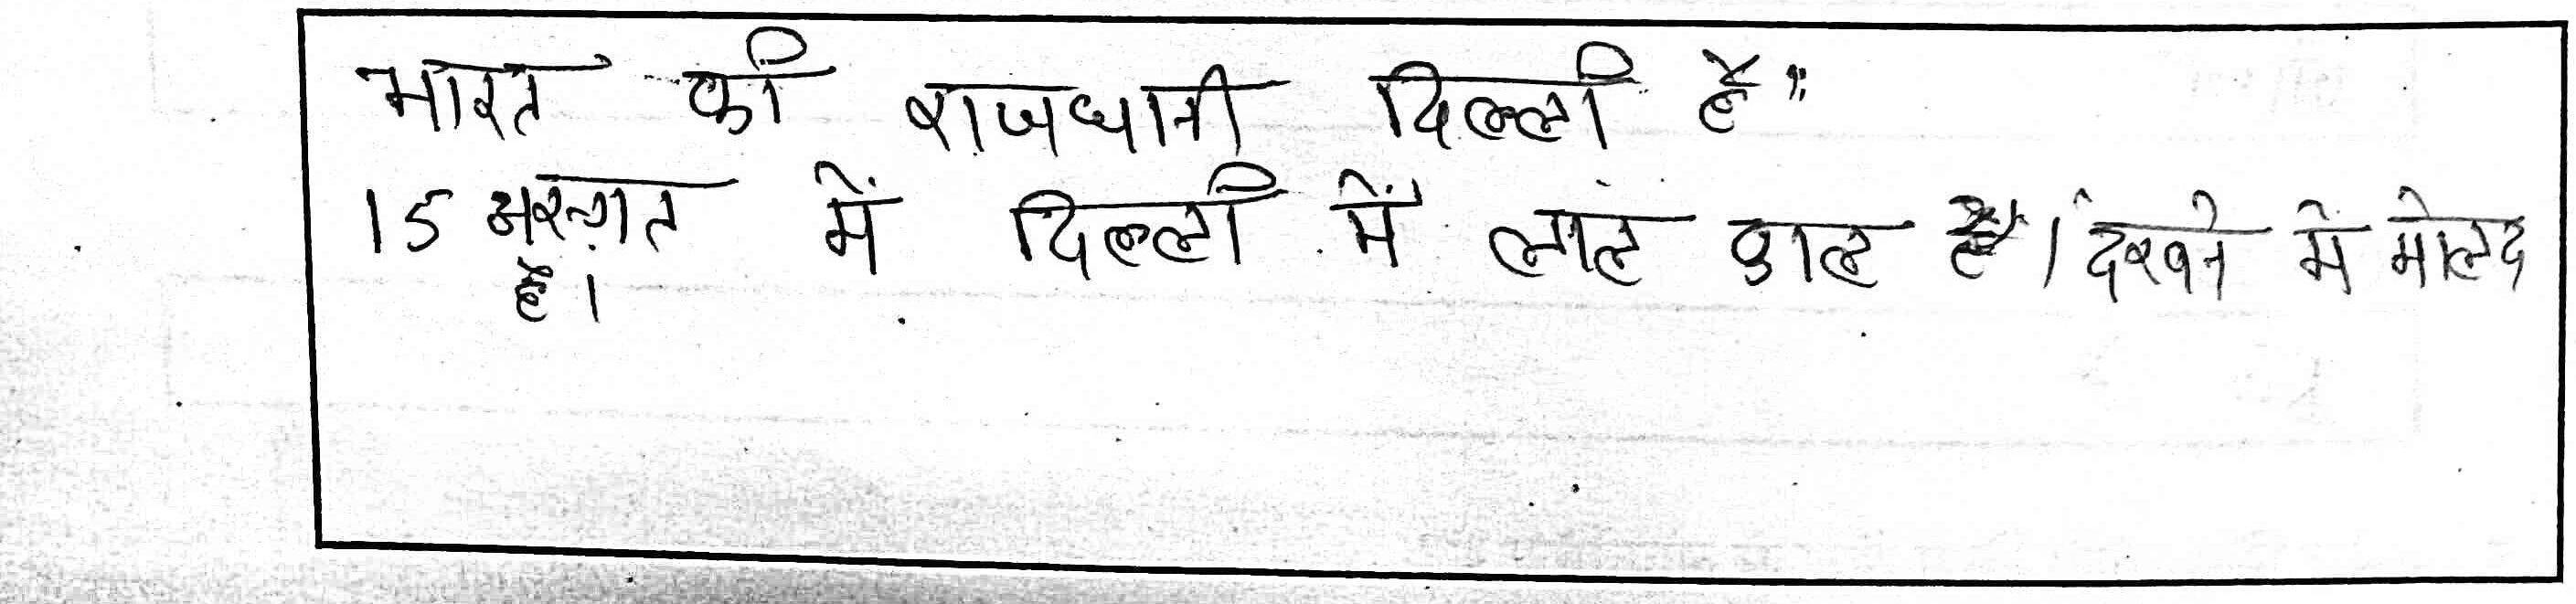 भारत की राजधानी दिल्ली है"
15 अस्गत में दिल्ली में लाल काल है। देखने में मोलद
है।